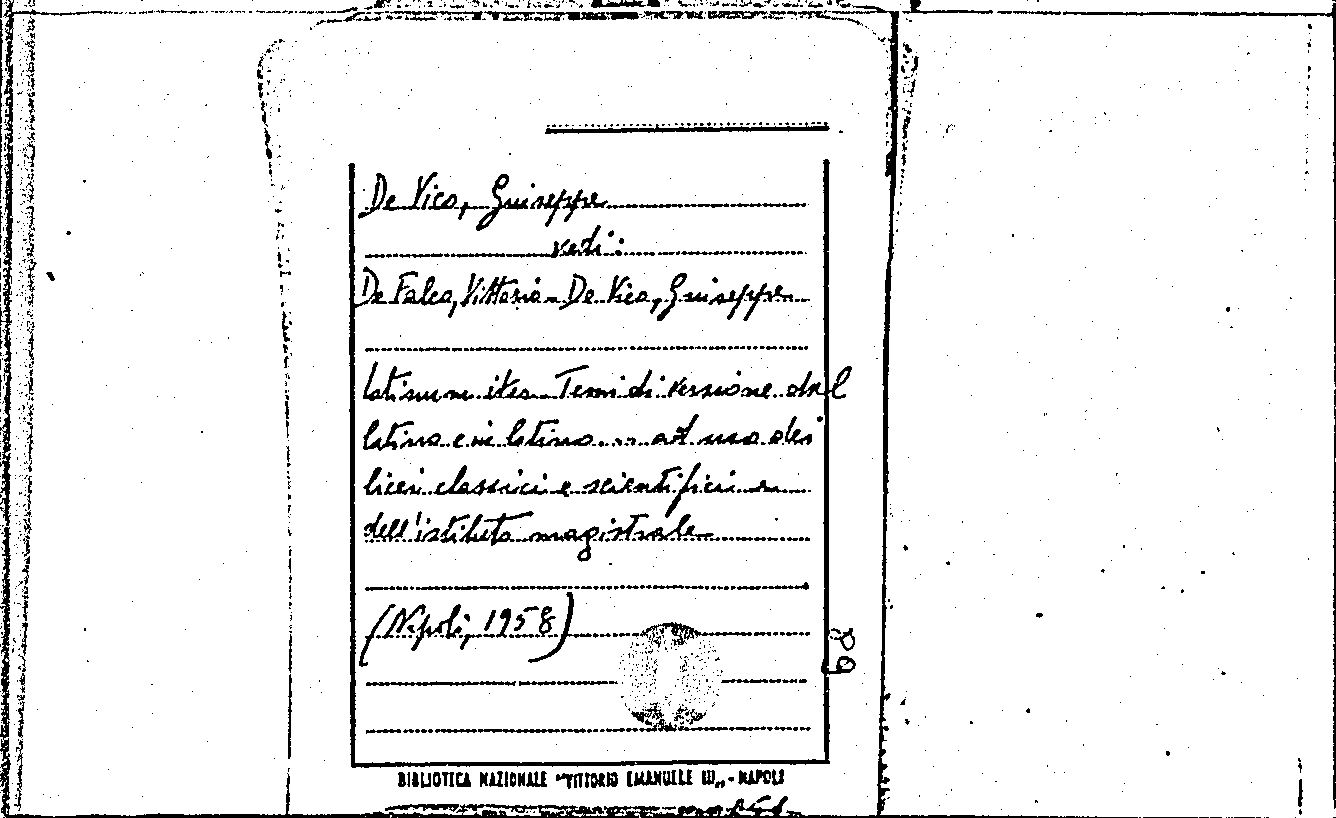 De Vico, Giuseppe
vedi:
De Falco, Vittorio - De Vico, Giuseppe
Latinum iter. Temi di versione dal
latino e in latino ... ad uso dei
licei classici e scientifici e
dell'istituto magistrale
(Napoli, 1958)
68
BIBLIOTECA NAZIONALE "VITTORIO EMANUELE III„ - NAPOLI